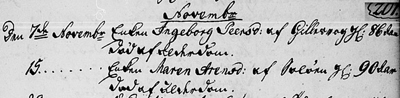 Novembr
201
Den 7de Novembr Enken Ingeborg Peersd: af 86 Aar
Død af Alderdom.
15 Enken Maren Arensd: af 90 Aar
Død af Alderdom.